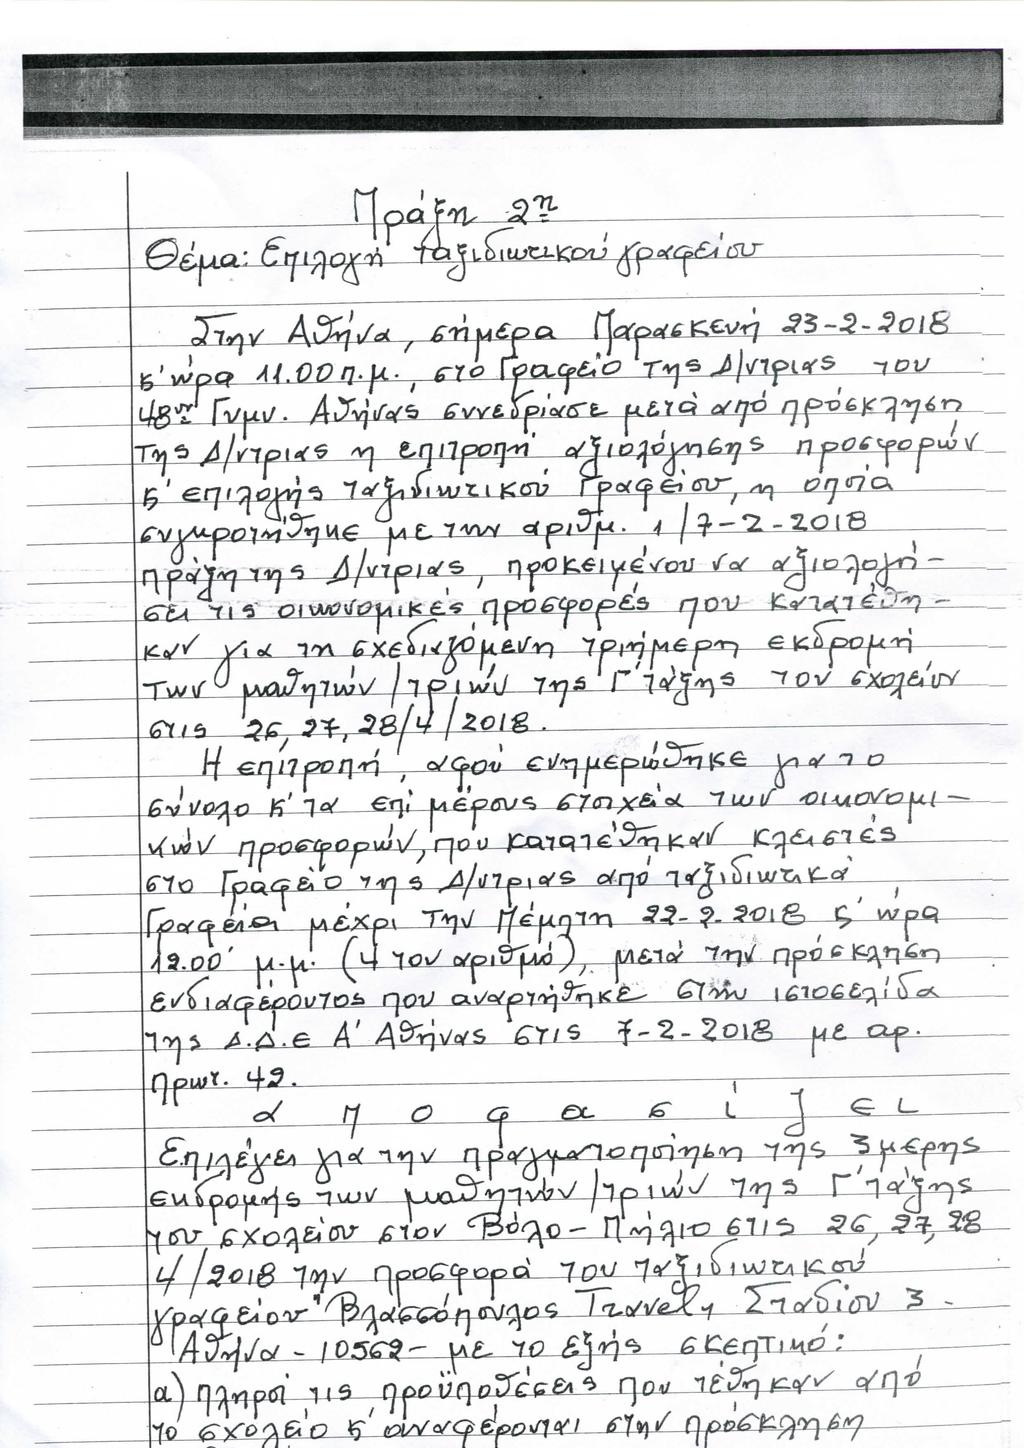 Πράξη 2η
Θέμα: Επιλογή ταξιδιωτικού γραφείου
Στην Αθήνα, σήμερα Παρασκευή 23-2-2018
κ' ώρα 11.00 π.μ., στο Γραφείο της Δ/ντριας του
48ου Γυμν. Αθήνας συνεδρίασε μετά από πρόσκληση
της Δ/ντριας η επιτροπή αξιολόγησης προσφορών
κ' επιλογής ταξιδιωτικού Γραφείου, η οποία
συγκροτήθηκε με την αριθμ. 1/7-2-2018
πράξη της Δ/ντριας, προκειμένου να αξιολογή-
σει τις οικονομικές προσφορές που κατατέθη-
καν για τη σχεδιαζόμενη τριήμερη εκδρομή
των μαθητών/τριών της Γ' τάξης του σχολείου
στις 26, 27, 28/4/2018.
Η επιτροπή, αφού ενημερώθηκε για το
σύνολο κ' τα επί μέρους στοιχεία των οικονομι-
κών προσφορών, που κατατέθηκαν κλειστές
στο Γραφείο της Δ/ντριας από ταξιδιωτικά
Γραφεία μέχρι την Πέμπτη 22-2-2018 κ' ώρα
12.00 μ.μ. (4 τον αριθμό), μετά την πρόσκληση
ενδιαφέροντος που αναρτήθηκε στην ιστοσελίδα
της Δ.Δ.Ε Α' Αθήνας στις 7-2-2018 με αρ.
πρωτ. 42.
α π ο φ α σ ί ζ ει
Επιλέγει για την πραγματοποίηση της 3μερης
εκδρομής των μαθητών/τριών της Γ' τάξης
του σχολείου στον Βόλο-Πήλιο στις 26, 27, 28
4/2018 την προσφορά του ταξιδιωτικού
γραφείου "Βλασσόπουλος Σταδίου 3 -
Αθήνα - 10562 - με το εξής σκεπτικό:
α) πληροί τις προϋποθέσεις που τέθηκαν από
το σχολείο κ' αναφέρονται στην πρόσκληση